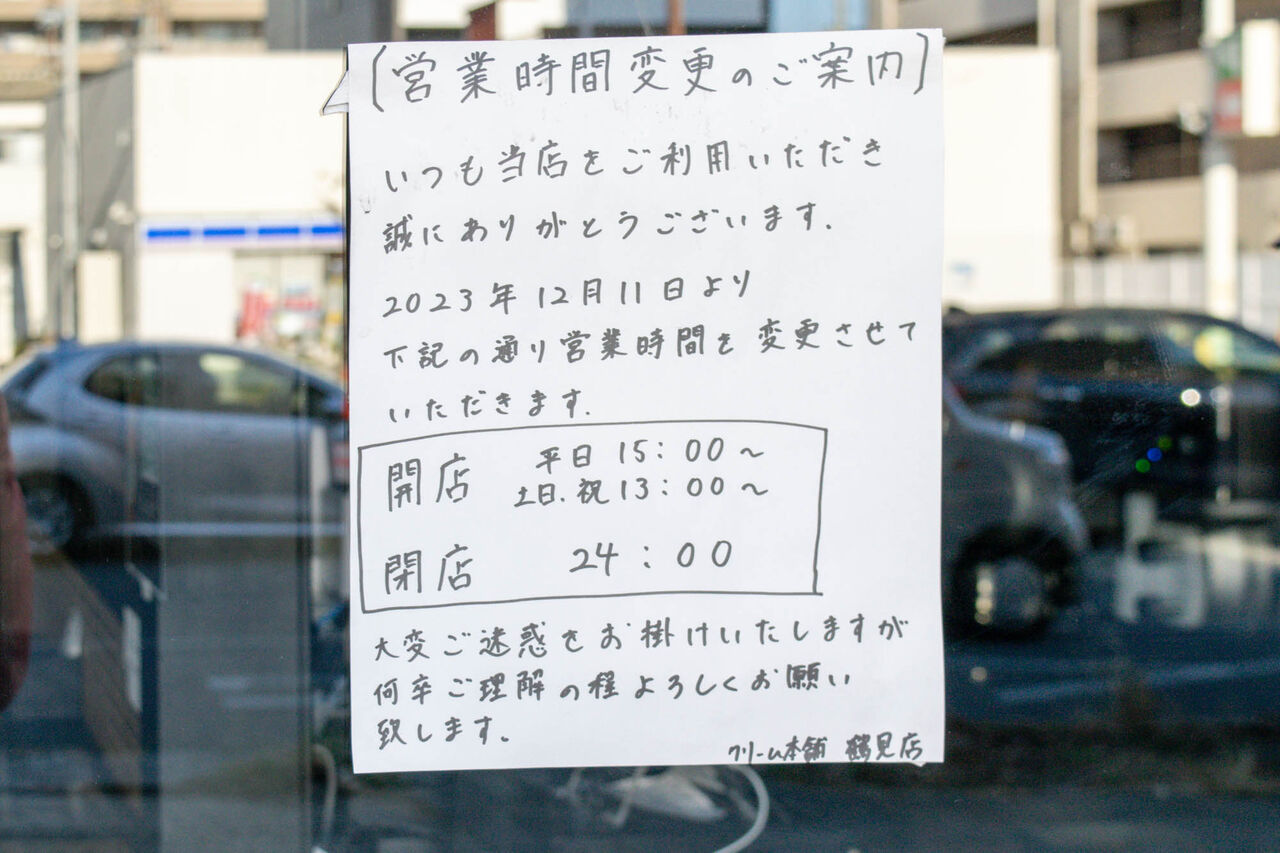 〔営業時間変更のご案内〕
いつも当店をご利用いただき
誠にありがとうございます.
2023年12月11日より
下記の通り営業時間を変更させて
いただきます.
開店 平日 15:00~
土日.祝13:00~
閉店 24:00
大変ご迷惑をお掛けいたしますが
何卒ご理解の程よろしくお願い
致します。
クリーム本舗 鶴見店